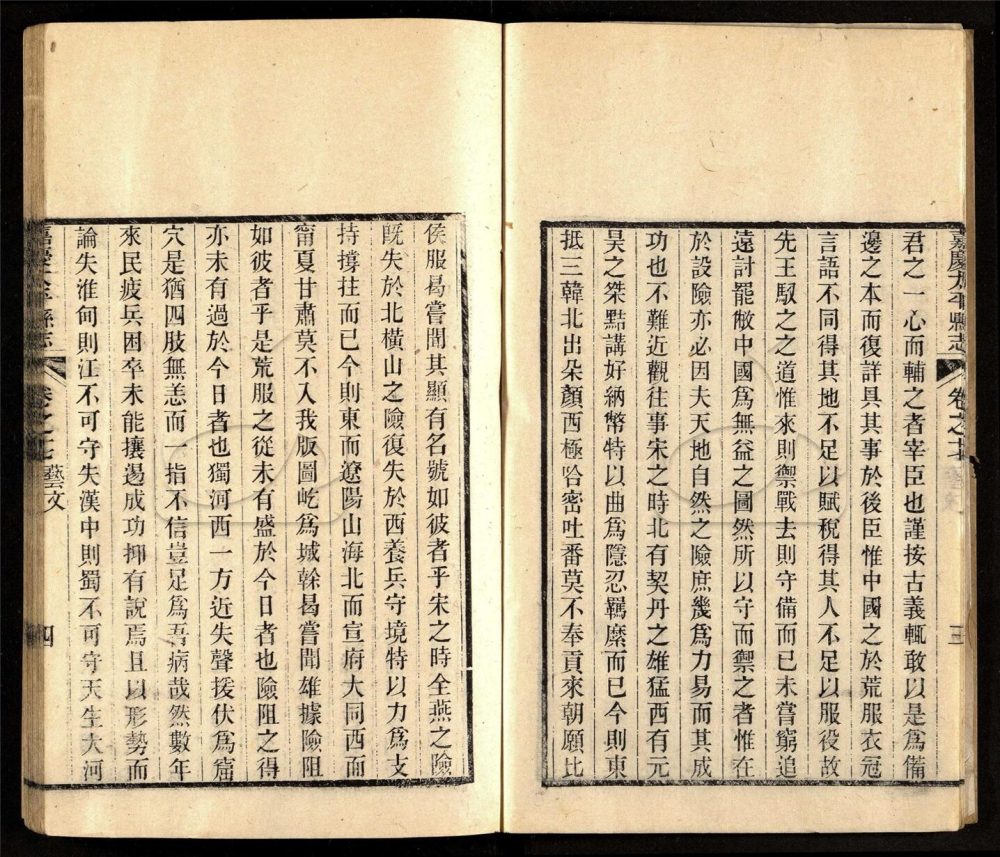 嘉慶太平縣志 卷之十七 藝文 三
君之一心而輔之者宰臣也謹按古義輒敢以是爲備
邊之本而復詳具其事於後臣惟中國之於荒服衣冠
言語不同得其地不足以賦稅得其人不足以服役故
先王馭之之道惟來則禦戰去則守備而已未嘗窮追
遠討罷敝中國爲無益之圖然所以守而禦之者惟在
於設險亦必因夫天地自然之險庶幾爲力易而其成
功也不難近觀往事宋之時北有契丹之雄猛西有元
昊之桀黠講好納幣特以曲爲隱忍羈縻而已今則東
抵三韓北出朵顏西極哈密吐番莫不奉貢來朝願比
侯服曷嘗聞其顯有名號如彼者乎宋之時全燕之險
旣失於北橫山之險復失於西養兵守境特以力爲支
持撐拄而已今則東而遼陽山海北而宣府大同西而
甯夏甘肅莫不入我版圖屹爲城榦曷嘗聞雄據險阻
如彼者乎是荒服之從未有盛於今日者也險阻之得
亦未有過於今日者也獨河西一方近失聲援伏爲窟
穴是猶四肢無恙而一指不信豈足爲吾病哉然數年
來民疲兵困卒未能攘逷成功抑有說焉且以形勢而
論失淮甸則江不可守失漢中則蜀不可守天生大河
嘉慶太平縣志 卷之十七 藝文 四